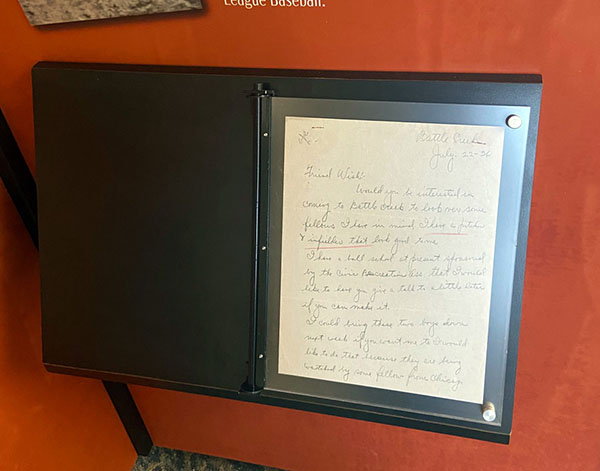 League Baseball.
Battle Creek
July 22-36
Friend Wish:
Would you be interested in
coming to Battle Creek to look over some
fellows I have in mind I have a pitcher
& infielder that look good to me
I have a ball school at present sponsored
by the Civic Recreation Ass. that I would
like to have you give a talk to a little later
if you can make it.
I could bring these two boys down
next week if you want me to I would
like to do that because they are being
watched by some fellow from Chicago